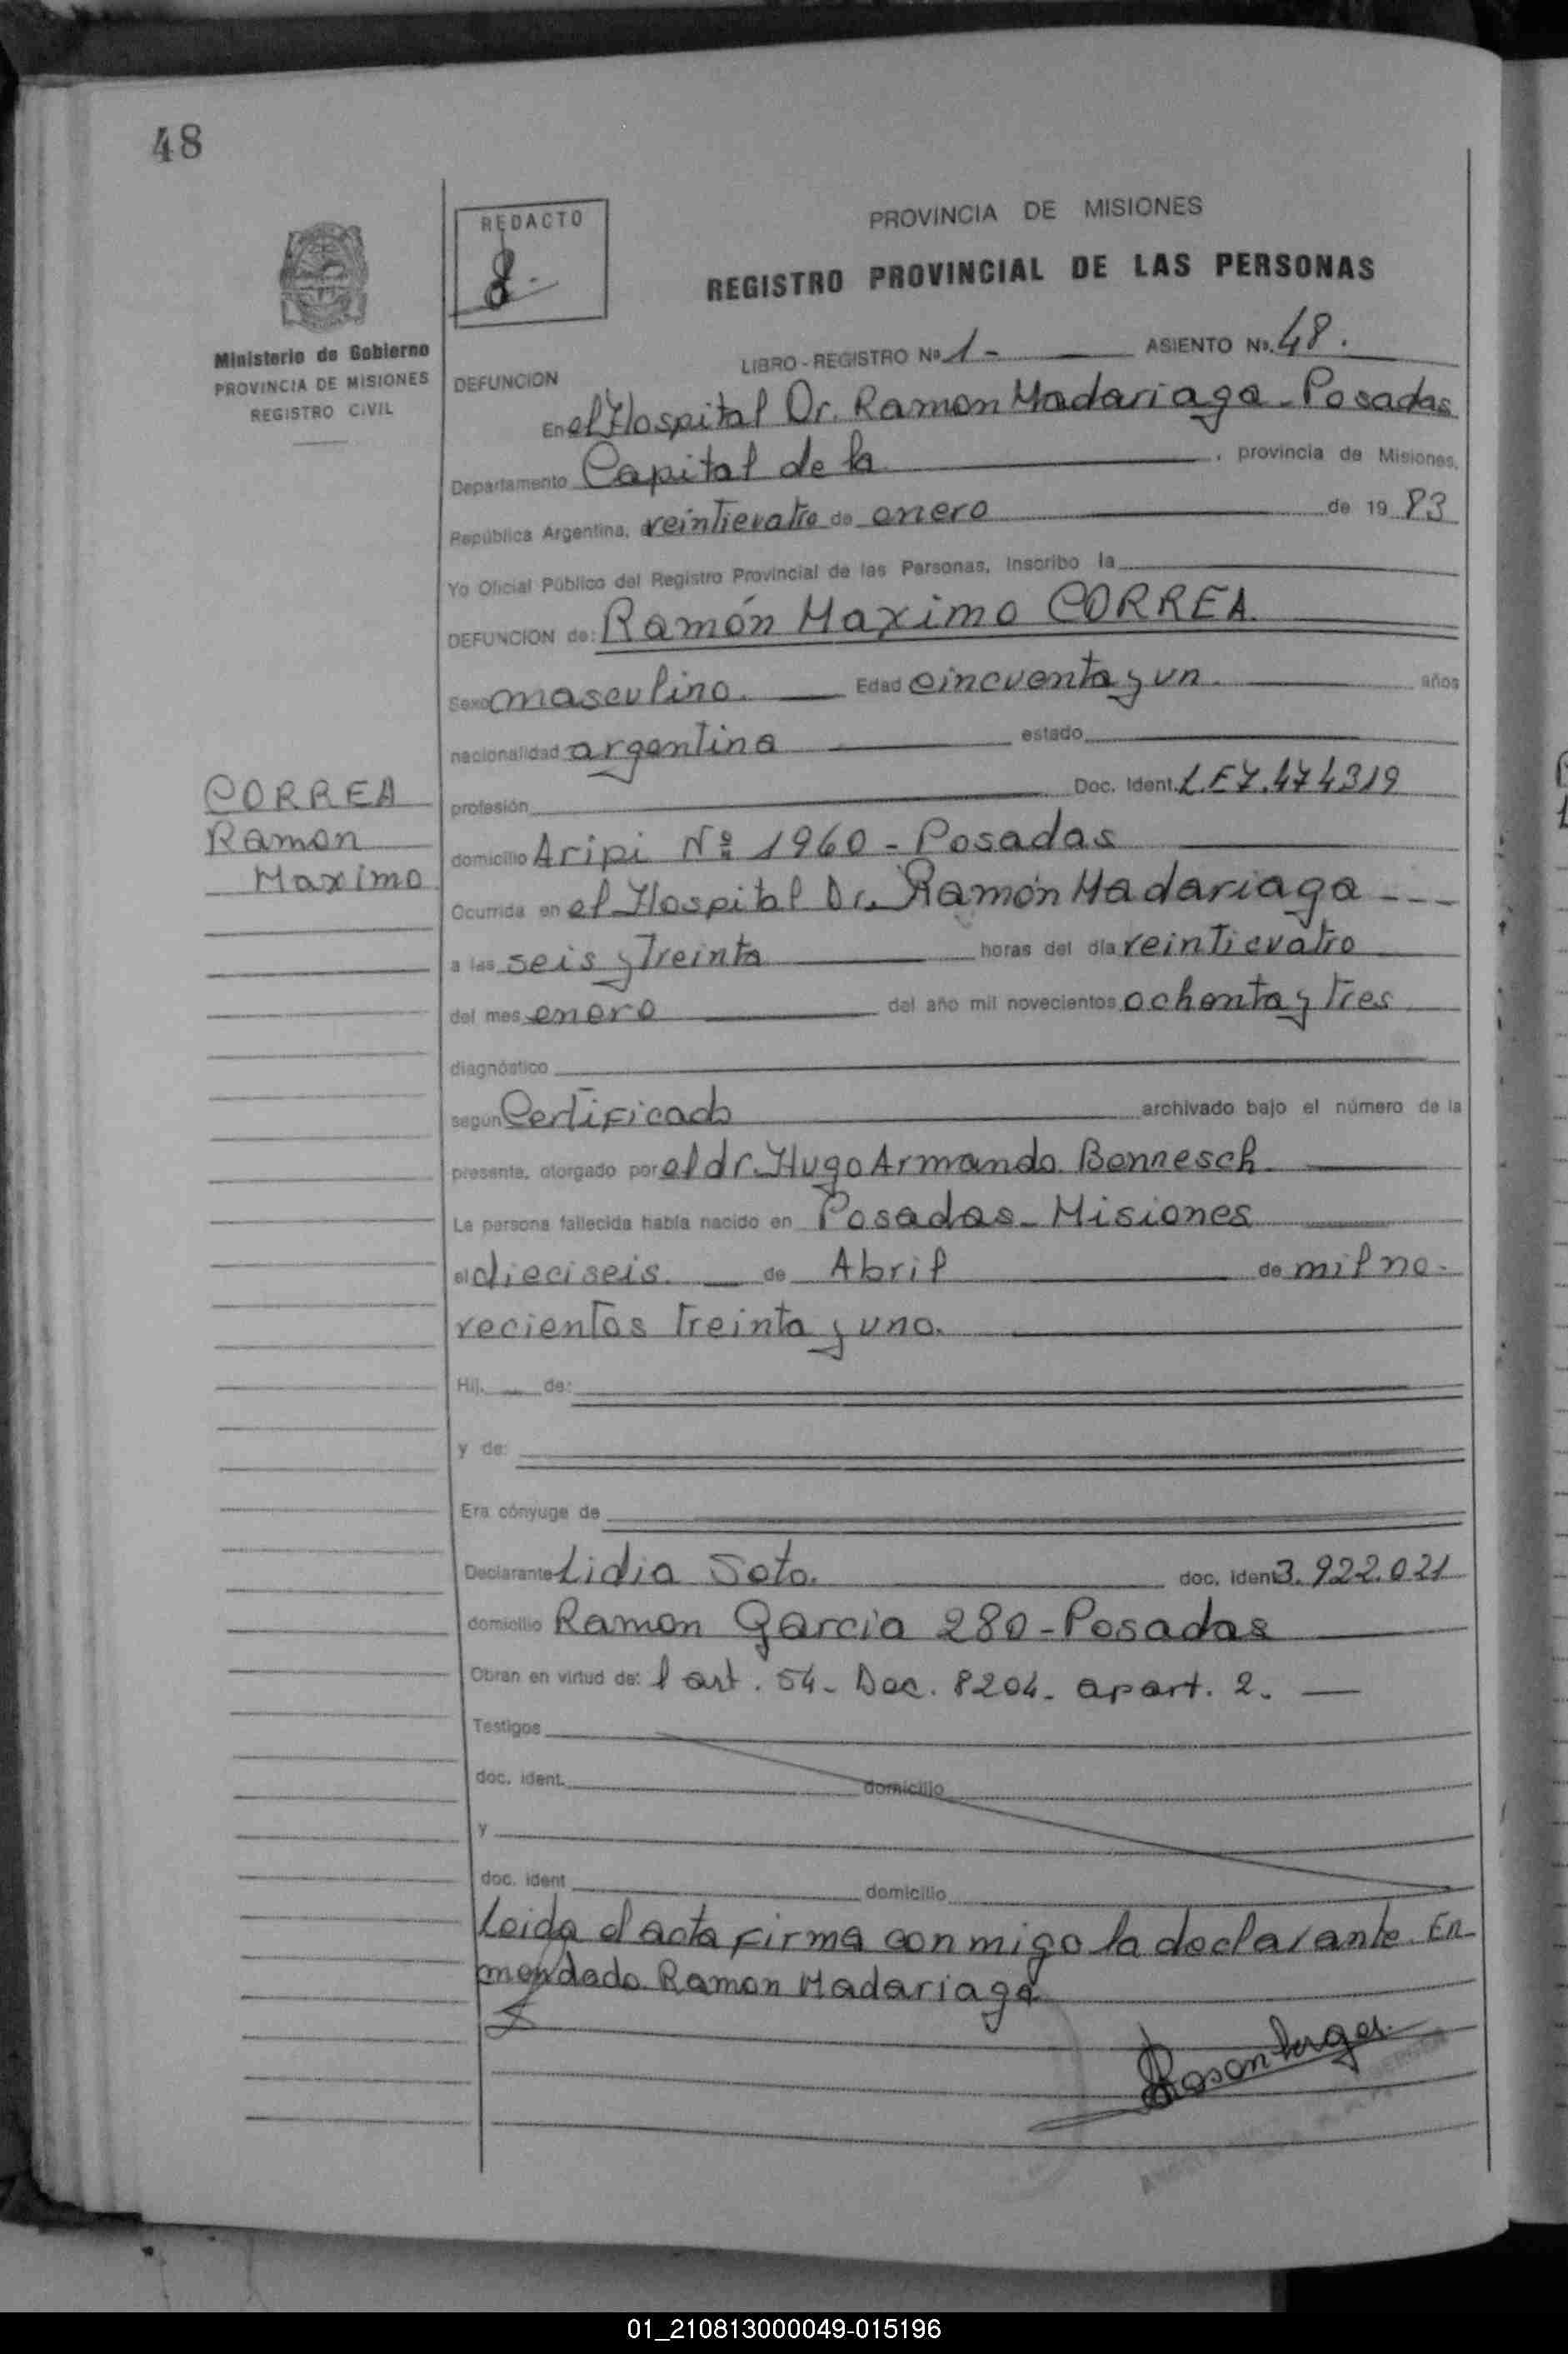 48
REDACTO
PROVINCIA DE MISIONES
REGISTRO PROVINCIAL DE LAS PERSONAS
Ministerio de Gobierno
PROVINCIA DE MISIONES
REGISTRO CIVIL
LIBRO - REGISTRO Nº 1 - ASIENTO Nº. 48.
DEFUNCION
En el Hospital Dr. Ramon Madariaga - Posadas
Departamento Capital de la , provincia de Misiones,
República Argentina, a veinticuatro de enero de 19 83
Yo Oficial Público del Registro Provincial de las Personas, Inscribo la
DEFUNCION de: Ramón Maximo CORREA.
Sexo masculino. Edad cincuenta y un. años
nacionalidad argentina estado
CORREA
Ramon
Maximo
profesión Doc. Ident. L.E 7.474319
domicilio Aripi Nº 1960 - Posadas
Ocurrida en el Hospital Dr. Ramón Madariaga ---
a las seis y treinta horas del día veinticuatro
del mes enero del año mil novecientos ochenta y tres
diagnóstico
según Certificado archivado bajo el número de la
presente, otorgado por el dr. Hugo Armando Bennesch
La persona fallecida había nacido en Posadas - Misiones
el dieciseis. de Abril de mil no-
vecientos treinta y uno.
Hij. de:
y de:
Era cónyuge de
Declarante Lidia Soto. doc. ident 3.922.021
domicilio Ramon Garcia 280 - Posadas
Obran en virtud de: l art. 54 - Dec. 8204 - apart. 2. —
Testigos
doc. ident. domicilio
y
doc. ident domicilio
Leida el acta firma conmigo la declarante. En-
mendado. Ramon Madariaga
01_210813000049-015196